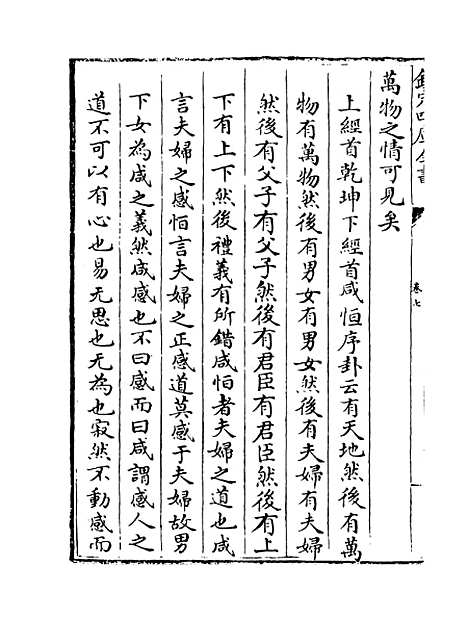 欽定四庫全書
卷七
萬物之情可見矣
上經首乾坤下經首咸恒序卦云有天地然後有萬
物有萬物然後有男女有男女然後有夫婦有夫婦
然後有父子有父子然後有君臣有君臣然後有上
下有上下然後禮義有所錯咸恒者夫婦之道也咸
言夫婦之感恒言夫婦之正感道莫感于夫婦故男
下女為咸之義然咸感也不曰感而曰咸謂感人之
道不可以有心也易无思也无為也寂然不動感而